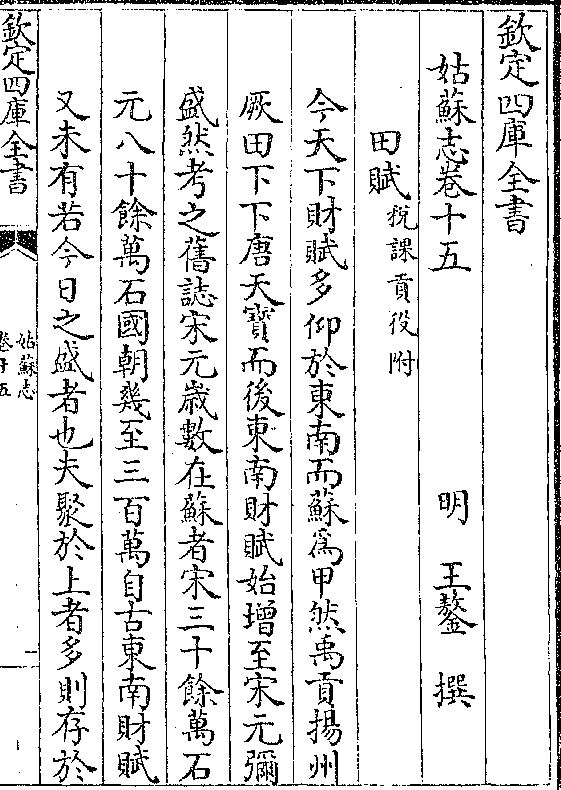 欽定四庫全書
姑蘇志卷十五
明 王鏊 撰
田賦税課貢役附
今天下財賦多仰於東南而蘇為甲然禹貢揚州
厥田下下唐天寶而後東南財賦始增至宋元彌
盛然考之舊誌宋元歲數在蘇者宋三十餘萬石
元八十餘萬石國朝幾至三百萬自古東南財賦
又未有若今日之盛者也夫聚於上者多則存於
欽定四庫全書
姑蘇志
卷十五
一